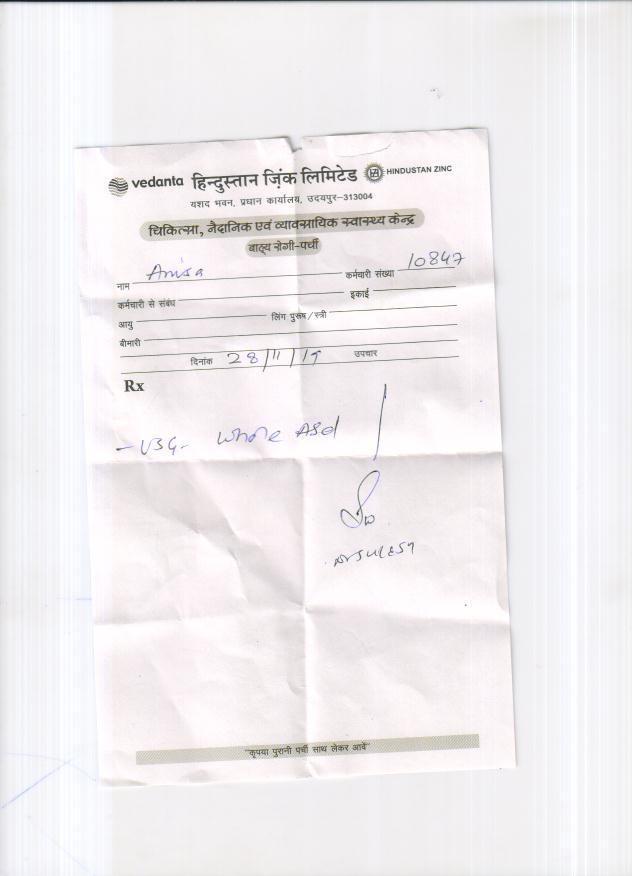 vedanta हिन्दुस्तान ज़िंक लिमिटेड HZL HINDUSTAN ZINC
यशद भवन, प्रधान कार्यालय, उदयपुर-313004
चिकित्सा, नैदानिक एवं व्यावसायिक स्वास्थ्य केन्द्र
बाह्य रोगी-पर्ची
नाम Anisa कर्मचारी संख्या 10847
कर्मचारी से संबंध इकाई
आयु लिंग पुरूष/स्त्री
बीमारी
दिनांक 28/11/19 उपचार
Rx
- USG- whole Abd
"कृपया पुरानी पर्ची साथ लेकर आवें"